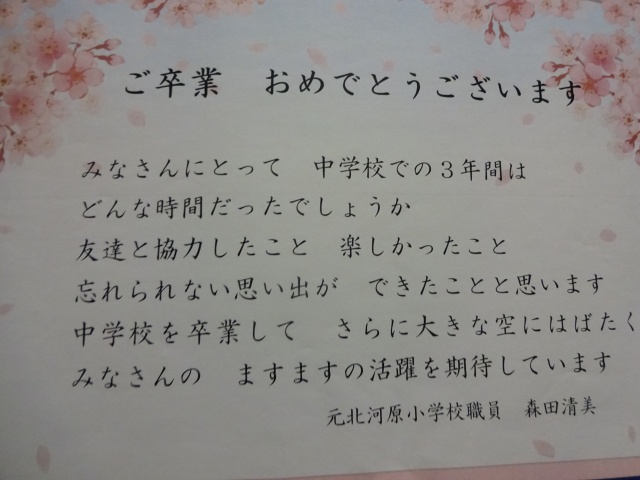 ご卒業　おめでとうございます
みなさんにとって　中学校での３年間は
どんな時間だったでしょうか
友達と協力したこと　楽しかったこと
忘れられない思い出が　できたことと思います
中学校を卒業して　さらに大きな空にはばたく
みなさんの　ますますの活躍を期待しています
元北河原小学校職員　森田清美